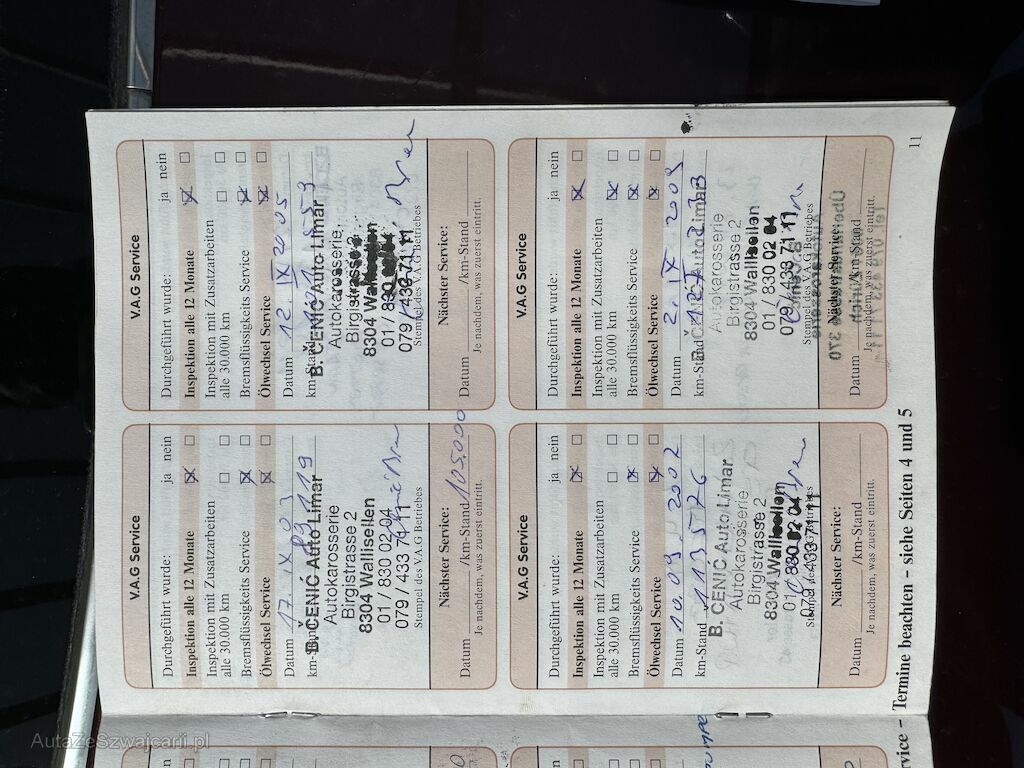 V.A.G Service
Durchgeführt wurde: ja nein
Inspektion alle 12 Monate
Inspektion mit Zusatzarbeiten
alle 30.000 km
Bremsflüssigkeits Service
Ölwechsel Service
Datum 17. IX 03
km-Stand 119
B. ČENIĆ Auto Limar
Autokarosserie
Birgistrasse 2
8304 Wallisellen
01 / 830 02 04
079 / 433 71 11
Stempel des V.A.G Betriebes
Nächster Service:
Datum /km-Stand 105.000
Je nachdem, was zuerst eintritt.
V.A.G Service
Durchgeführt wurde: ja nein
Inspektion alle 12 Monate
Inspektion mit Zusatzarbeiten
alle 30.000 km
Bremsflüssigkeits Service
Ölwechsel Service
Datum 12. IX 2005
km-Stand 101 559
B. ČENIĆ Auto Limar
Autokarosserie
Birgistrasse 2
8304 Wallisellen
01 / 830 02 04
079 / 433 71 11
Stempel des V.A.G Betriebes
Nächster Service:
Datum /km-Stand
Je nachdem, was zuerst eintritt.
V.A.G Service
Durchgeführt wurde: ja nein
Inspektion alle 12 Monate
Inspektion mit Zusatzarbeiten
alle 30.000 km
Bremsflüssigkeits Service
Ölwechsel Service
Datum 10.09
km-Stand 113576
B. ČENIĆ Auto Limar
Autokarosserie
Birgistrasse 2
8304 Wallisellen
01 / 830 02 04
079 / 433 71 11
Nächster Service:
Datum /km-Stand
Je nachdem, was zuerst eintritt.
V.A.G Service
Durchgeführt wurde: ja nein
Inspektion alle 12 Monate
Inspektion mit Zusatzarbeiten
alle 30.000 km
Bremsflüssigkeits Service
Ölwechsel Service
Datum 2. IX 2009
km-Stand
ČENIĆ Auto Limar
Autokarosserie
Birgistrasse 2
8304 Wallisellen
01 / 830 02 04
079 / 433 71 11
Stempel des V.A.G Betriebes
Nächster Service:
Datum /km-Stand
Je nachdem, was zuerst eintritt.
ervice – Termine beachten – siehe Seiten 4 und 5
11
AutaZeSzwajcarii.pl